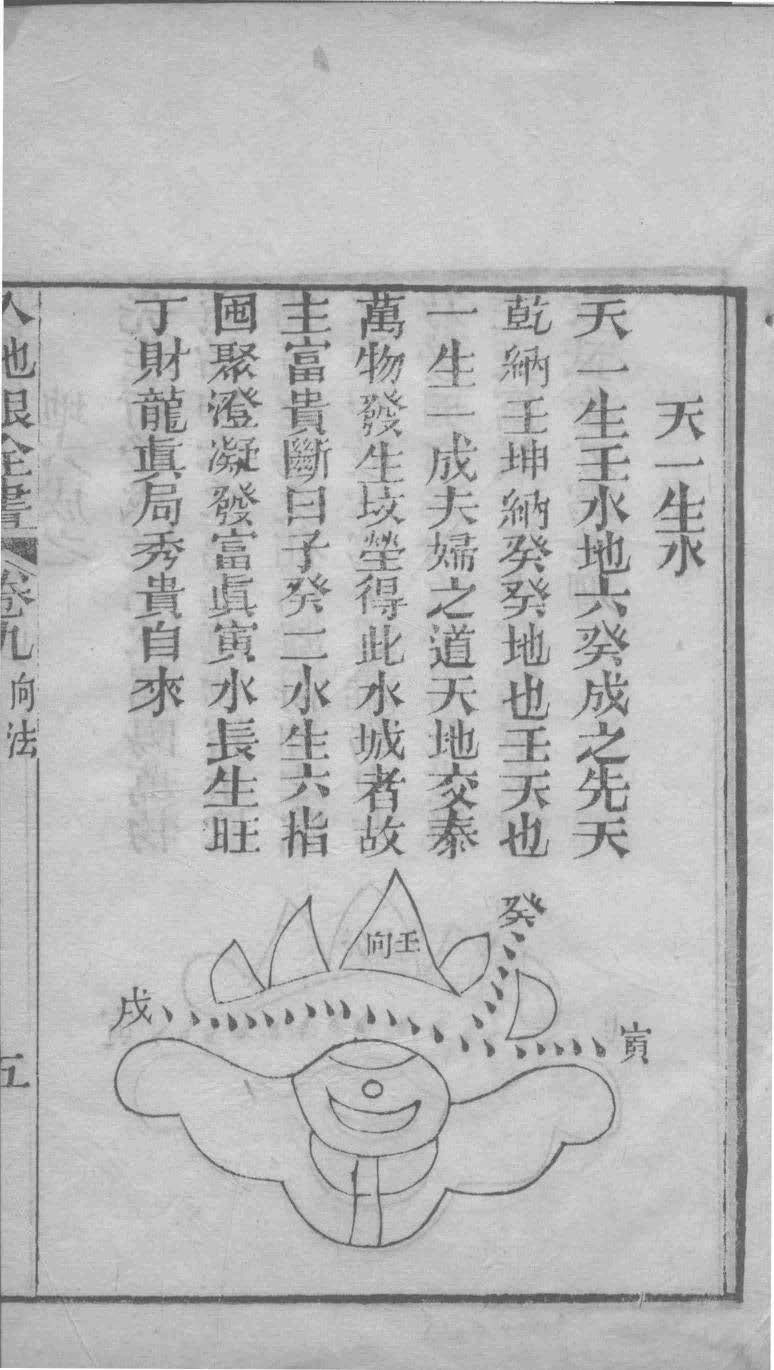 天一生水
天一生壬水地六癸成之先天
乾納壬坤納癸癸地也壬天也
一生一成夫婦之道天地交泰
萬物發生墳塋得此水城者故
主富貴斷曰子癸二水生六指
囤聚澄凝發富眞寅水長生旺
丁財龍眞局秀貴自來
癸
壬向
戌
寅
人地眼全書
卷九
向法
五